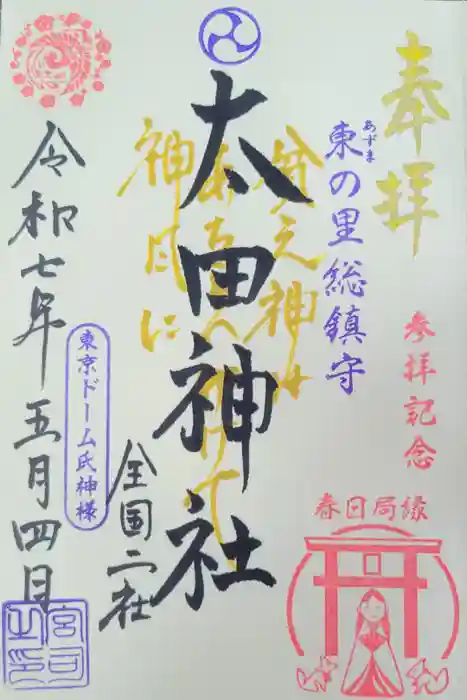 奉拝
参拝記念
春日局縁
あずま
東の里総鎮守
太田神社
神風に
全国二社
東京ドーム氏神様
令和七年五月四日
宮司之印